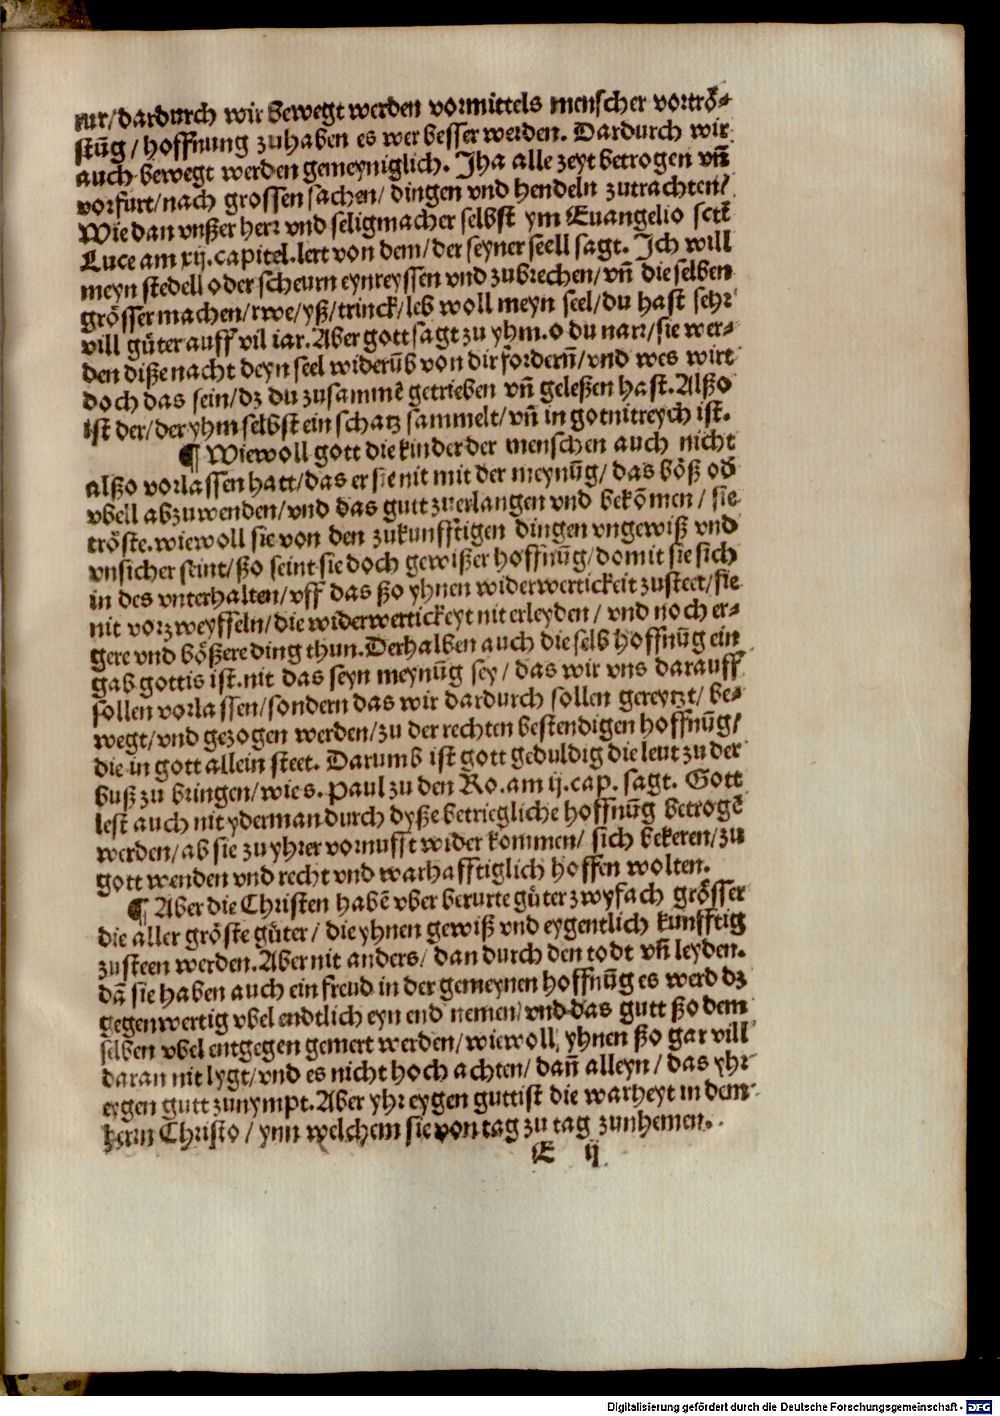 tur/dardurch wir bewegt werden vormittels menscher vortrö⸗
stūg/hoffnung zuhaben es wer besser werden. Dardurch wir
auch bewegt werden gemeyniglich. Jha alle zeyt betrogen vn̄
vorfurt/nach grossen sachen/dingen vnd hendeln zutrachten/
Wie dan vnßer herr vnd seligmacher selbst ym Euangelio sctī
Luce am xij.capitel.lert von dem/der seyner seell sagt. Jch will
meyn stedell oder scheurn eynreyssen vnd zubrechen/vn̄ die selben
grösser machen/rwe/yß/trinck/leb woll meyn seel/du hast sehr
vill güter auff vil iar. Aber gott sagt zu yhm.o du narr/sie wer⸗
den diße nacht deyn seel widerūb von dir fordern̄/vnd wes wirt
doch das sein/dz du zusammē getrieben vn̄ geleßen hast. Alßo
ist der/der yhm selbst ein schatz sammelt/vn̄ in got nit reych ist.
¶ Wiewoll gott die kinder der menschen auch nicht
alßo vorlassen hatt/das er sie nit mit der meynūg/das böß od̄
vbell abzuwenden/vnd das gutt zuerlangen vnd bekōmen/sie
tröste.wiewoll sie von den zukunfftigen dingen vngewiß vnd
vnsicher seint/ßo seint sie doch gewißer hoffnūg/domit sie sich
in des vnterhalten/vff das ßo yhnen widerwertickeit zusteet/sie
nit vorzweyffeln/die widerwertickeyt nit erleyden/vnd noch er⸗
gere vnd bößere ding thun. Derhalben auch die selb hoffnūg ein
gab gottis ist.nit das seyn meynūg sey/das wir vns darauff
sollen vorlassen/sondern das wir dardurch sollen gereytzt/be⸗
wegt/vnd gezogen werden/zu der rechten bestendigen hoffnūg/
die in gott allein steet. Darumb ist gott geduldig die leut zu der
buß zu bringen/wie s. Paul zu den Ro.am ij.cap.sagt. Gott
lest auch nit yderman durch dyße betriegliche hoffnūg betrogē
werden/ab sie zu yhrer vornufft wider kommen/sich bekeren/zu
gott wenden vnd recht vnd warhafftiglich hoffen wolten.
¶ Aber die Christen habē vber berurte güter zwyfach grösser
die aller gröste güter/die yhnen gewiß vnd eygentlich kunfftig
zusteen werden. Aber nit anders/dan durch den todt vn̄ leyden.
dā sie haben auch ein freud in der gemeynen hoffnūg es werd dz
gegenwertig vbel endtlich eyn end nemen/vnd das gutt ßo dem
selben vbel entgegen gemert werden/wiewoll yhnen ßo gar vill
daran nit lygt/vnd es nicht hoch achten/dan̄ alleyn/das yhr
eygen gutt zunympt. Aber yhr eygen gutt ist die warheyt in dem
hern Christo/ynn welchem sie von tag zu tag zunhemen.
E ij
Digitalisierung gefördert durch die Deutsche Forschungsgemeinschaft - DFG